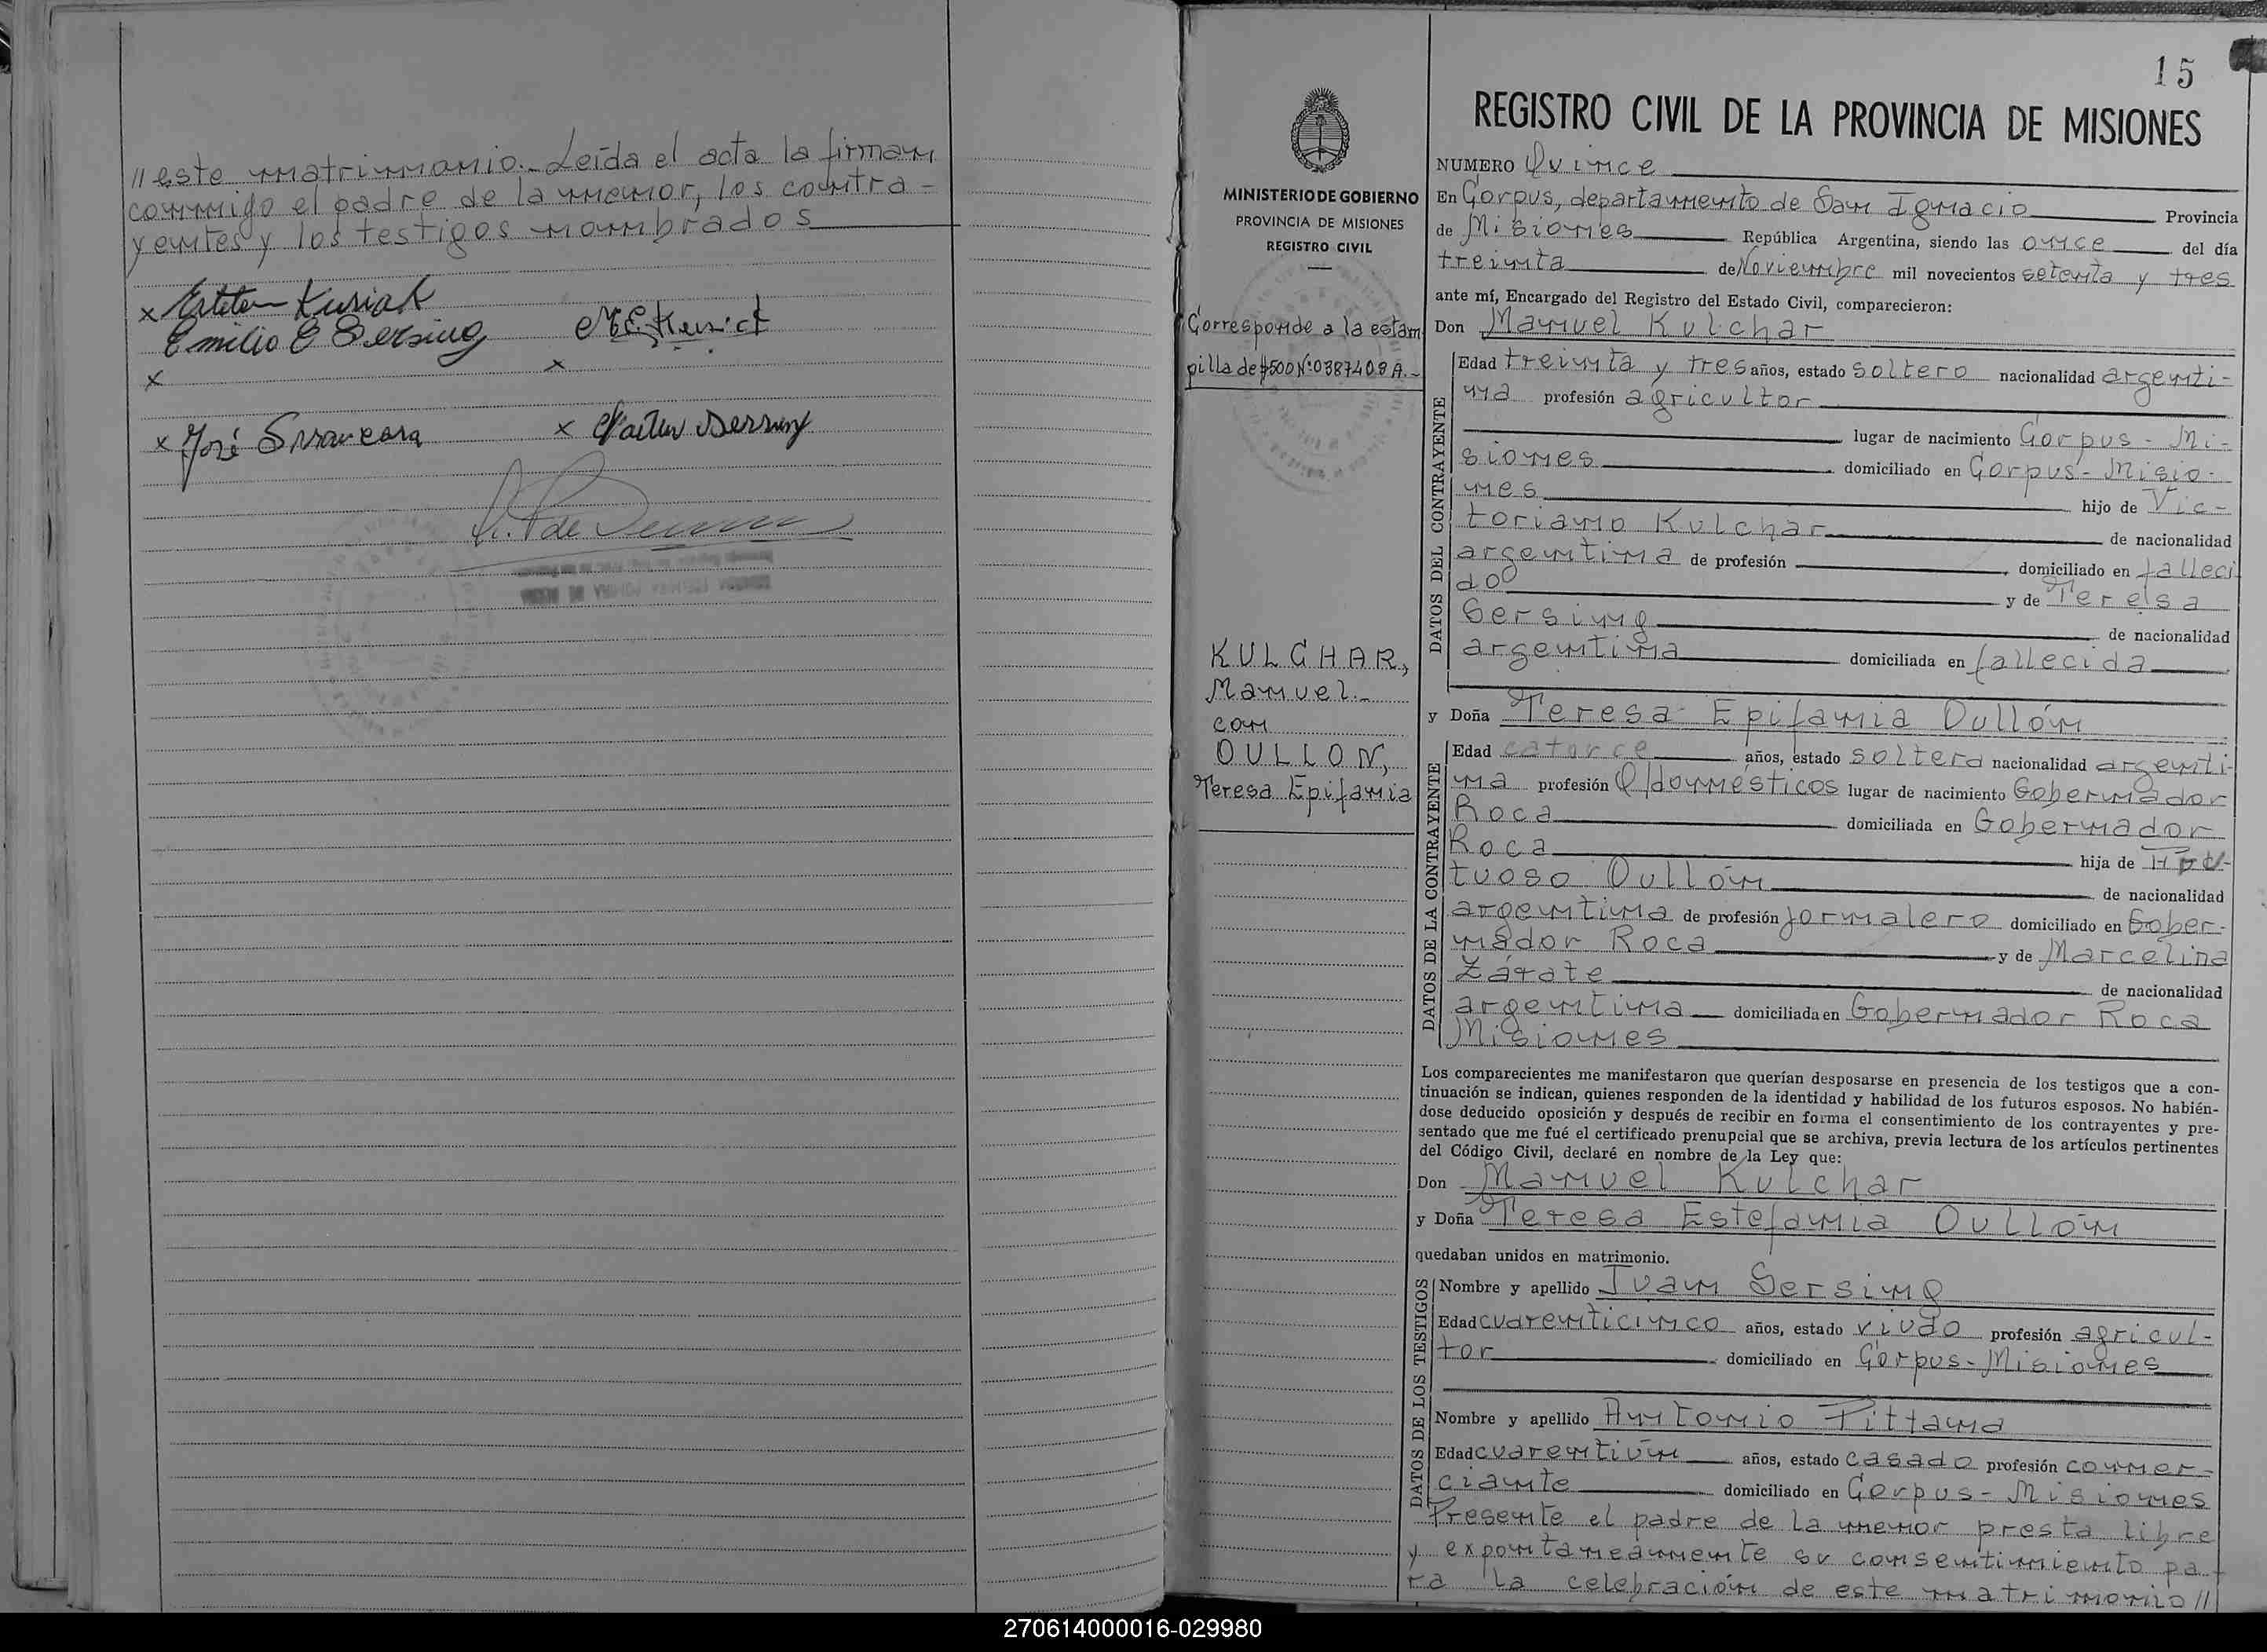 // este matrimonio.- Leída el acta la firman
conmigo el padre de la menor, los contra-
yentes y los testigos nombrados
x Esteban Kusiak
Emilio E Gersing
x
x
x José
x
15
REGISTRO CIVIL DE LA PROVINCIA DE MISIONES
MINISTERIO DE GOBIERNO
PROVINCIA DE MISIONES
REGISTRO CIVIL
Corresponde a la estam
pilla de $500 Nº 0387408 A.-
KULCHAR,
Manuel.-
con
OULLON,
Teresa Epifania
NUMERO Quince
En Corpus, departamento de San Ignacio Provincia
de Misiones República Argentina, siendo las once del día
treinta de Noviembre mil novecientos setenta y tres
ante mí, Encargado del Registro del Estado Civil, comparecieron:
Don Manuel Kulchar
DATOS DEL CONTRAYENTE
Edad treinta y tres años, estado soltero nacionalidad argenti-
na profesión agricultor
lugar de nacimiento Corpus - Mi-
siones domiciliado en Corpus - Misio-
nes hijo de Vic-
toriano Kulchar de nacionalidad
argentina de profesión domiciliado en falleci
do y de Teresa
Gersing de nacionalidad
argentina domiciliada en fallecida
y Doña Teresa Epifania Oullón
DATOS DE LA CONTRAYENTE
Edad catorce años, estado soltera nacionalidad argenti-
na profesión Q/domésticos lugar de nacimiento Gobernador
Roca domiciliada en Gobernador
Roca hija de
tuoso Oullón de nacionalidad
argentina de profesión jornalero domiciliado en Gober-
nador Roca y de Marcelina
Zárate de nacionalidad
argentina domiciliada en Gobernador Roca
Misiones
Los comparecientes me manifestaron que querían desposarse en presencia de los testigos que a con-
tinuación se indican, quienes responden de la identidad y habilidad de los futuros esposos. No habién-
dose deducido oposición y después de recibir en forma el consentimiento de los contrayentes y pre-
sentado que me fué el certificado prenupcial que se archiva, previa lectura de los artículos pertinentes
del Código Civil, declaré en nombre de la Ley que:
Don Manuel Kulchar
y Doña Teresa Estefania Oullón
quedaban unidos en matrimonio.
DATOS DE LOS TESTIGOS
Nombre y apellido Juan Gersing
Edad cuarenticinco años, estado viudo profesión agricul-
tor domiciliado en Corpus - Misiones
Nombre y apellido Antonio Pittana
Edad cuarentiún años, estado casado profesión comer-
ciante domiciliado en Corpus - Misiones
Presente el padre de la menor presta libre
y expontaneamente su consentimiento pa-
ra la celebración de este matrimonio //
270614000016-029980